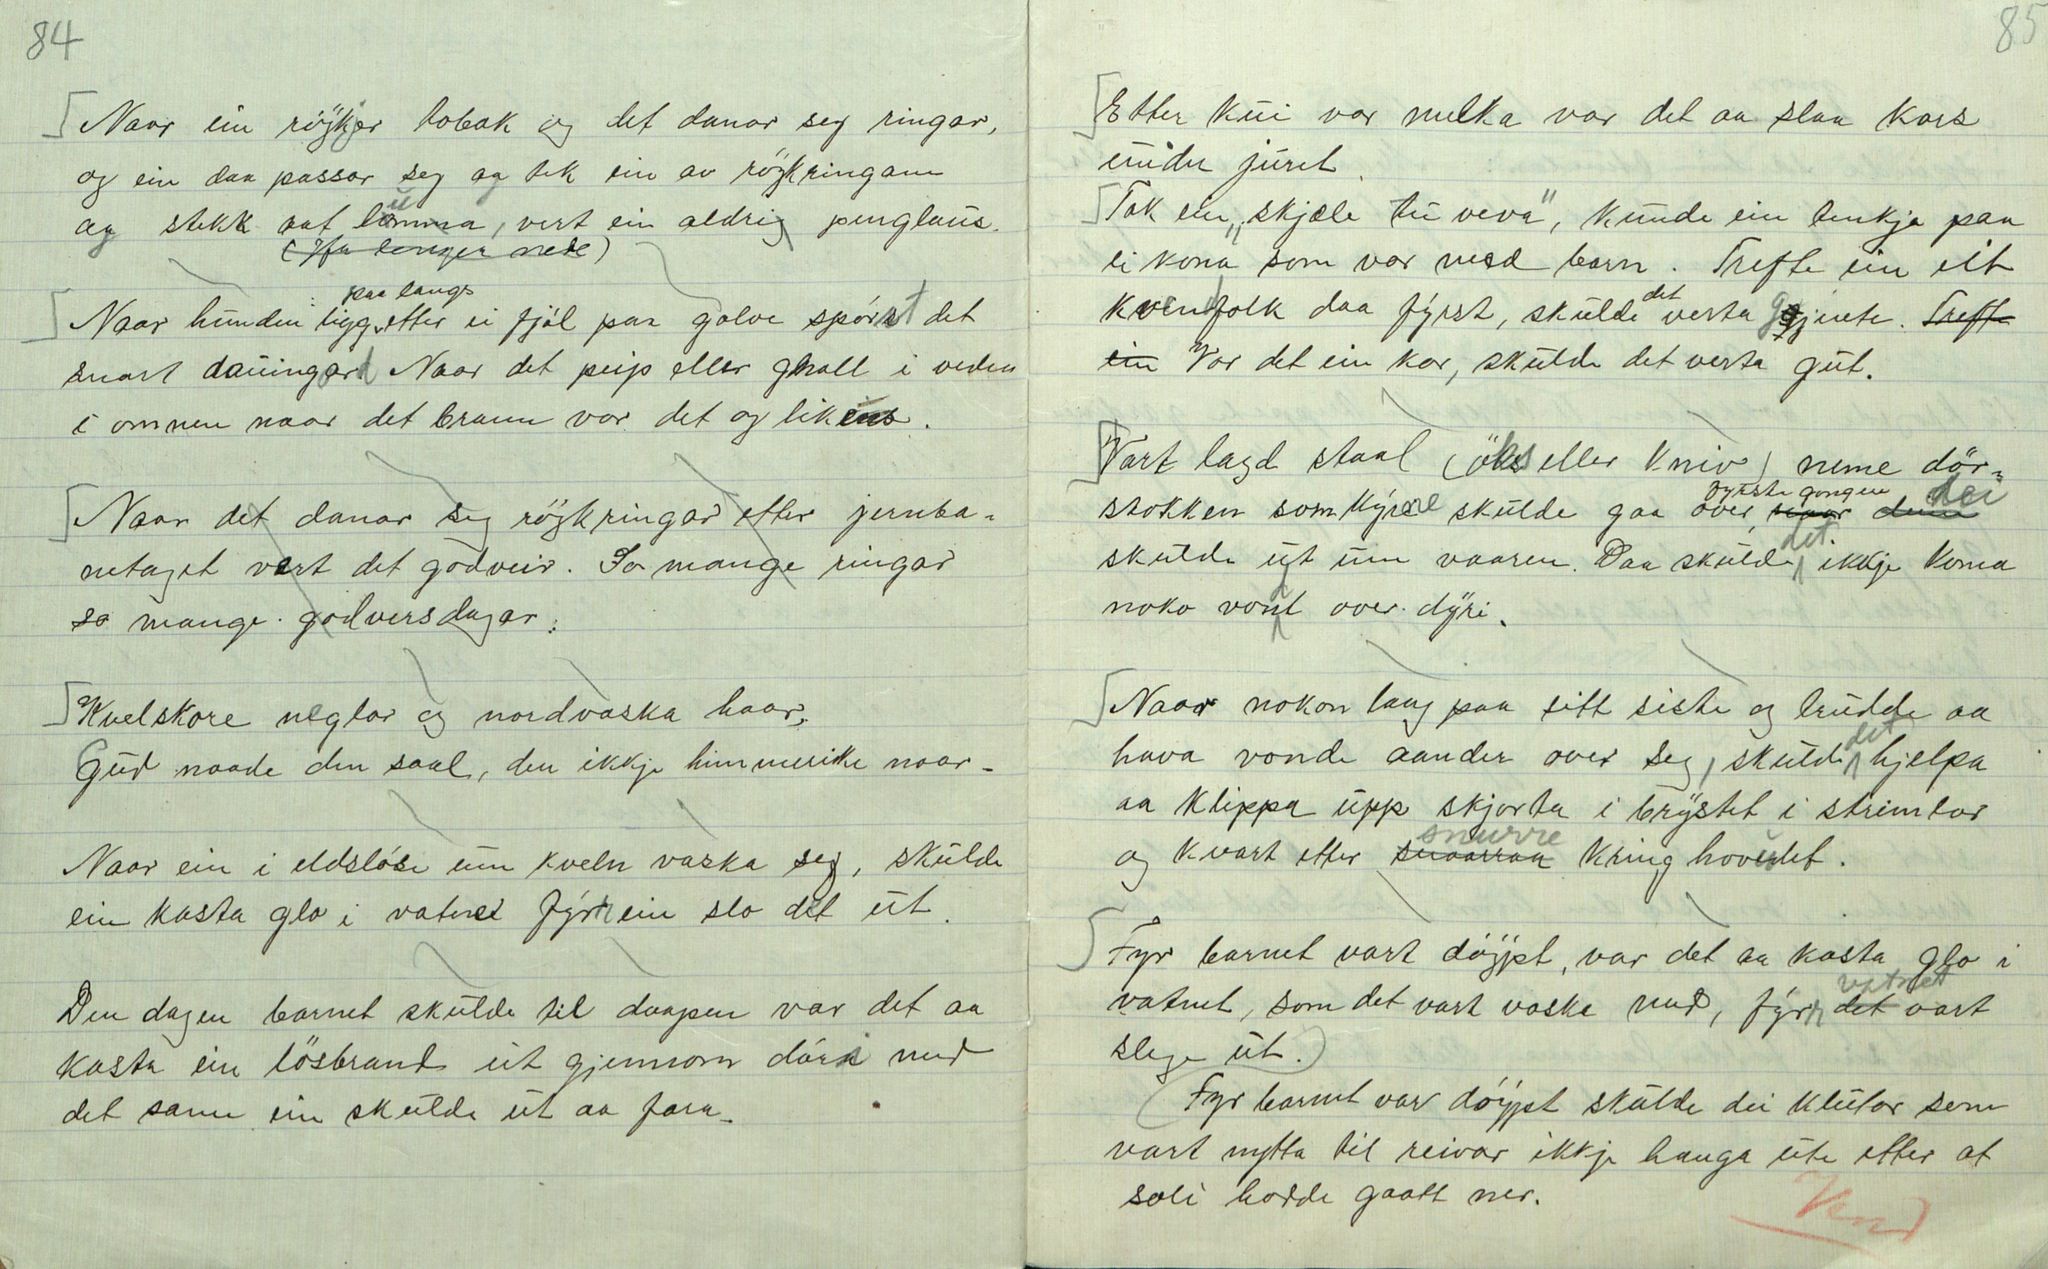 84
Naar ein röykjer tobak og det danar seg ringar,
og ein daa passar seg og tek ein av röykringane
og stekk aat lumma, vert ein aldrig penglaus.
(Ifra lenger nede)
Naar hunden ligg paa langs etter ei fjöl paa golve spörst det
snart dauingar. Naar det peip eller gnall i veden
i omnen naar det brann var det og likeins.
Naar det danar seg röykringar etter jernba-
netoget vert det godveir. So mange ringar
so mange godversdagar.
Kvelskore neglar og nordvaska haar.
Gud naade den sael, den ikkje himmerike naar.
Naar ein i eldslöse um kveln vaska seg, skulde
ein kasta glo i vatnet fyrr ein slo det ut.
Den dagen barnet skulde til daapen var det aa
kasta ein lösbrand ut gjennom döri med
det same ein skulde ut aa fara.
85
Etter kui var melka var det aa slaa kors
under juret.
Tok ein "skjele tu veva", kunde ein tenkja paa
ei kona som var med barn. Trefte ein eit
kvendfolk daa fyrst, skulde det verta gjente. Trefte
ein Var det ein kar, skulde det verta gut.
Vart lagd staal (öks eller kniv) neme dör-
stokken som kyrne skulde gaa over fyrste gongen naar dei
skulde ut um vaaren. Daa skulde det ikkje koma
noko vondt over dyri.
Naar nokon laag paa sitt siste og trudde aa
hava vonde aander over seg, skulde det hjelpa
aa klippa upp skjorta i brystet i strimlar
og kvart etter snaarraa snurre kring hovudet.
Fyr barnet vart döypt, var det aa kasta glo i
vatnet, som det vart vaska med, fyrr det vatnet vart
slege ut.)
(Fyr barnet var döypt skulde dei klutar som
vart nytta til reivar ikkje hanga ute etter at
soli hadde gaatt ner.
Vend